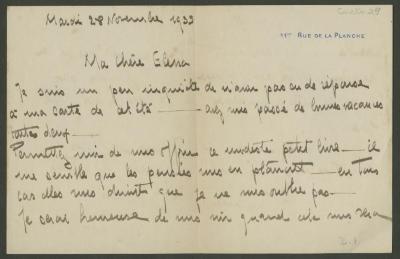 Mardi 28 Novembre 1933
11bis RUE DE LA PLANCHE
Ma Chère Elena
Je suis un peu inquiète de n'avoir pas eu de réponse
à ma carte de cet été — avez vous passé de bonnes vacances
toutes deux —
Permettez moi de vous offrir ce modeste petit livre — il
me semble que les pensées vous en plairont — en tous
cas elles vous diront que je ne vous oublie pas —
Je serai heureuse de vous voir quand cela vous sera